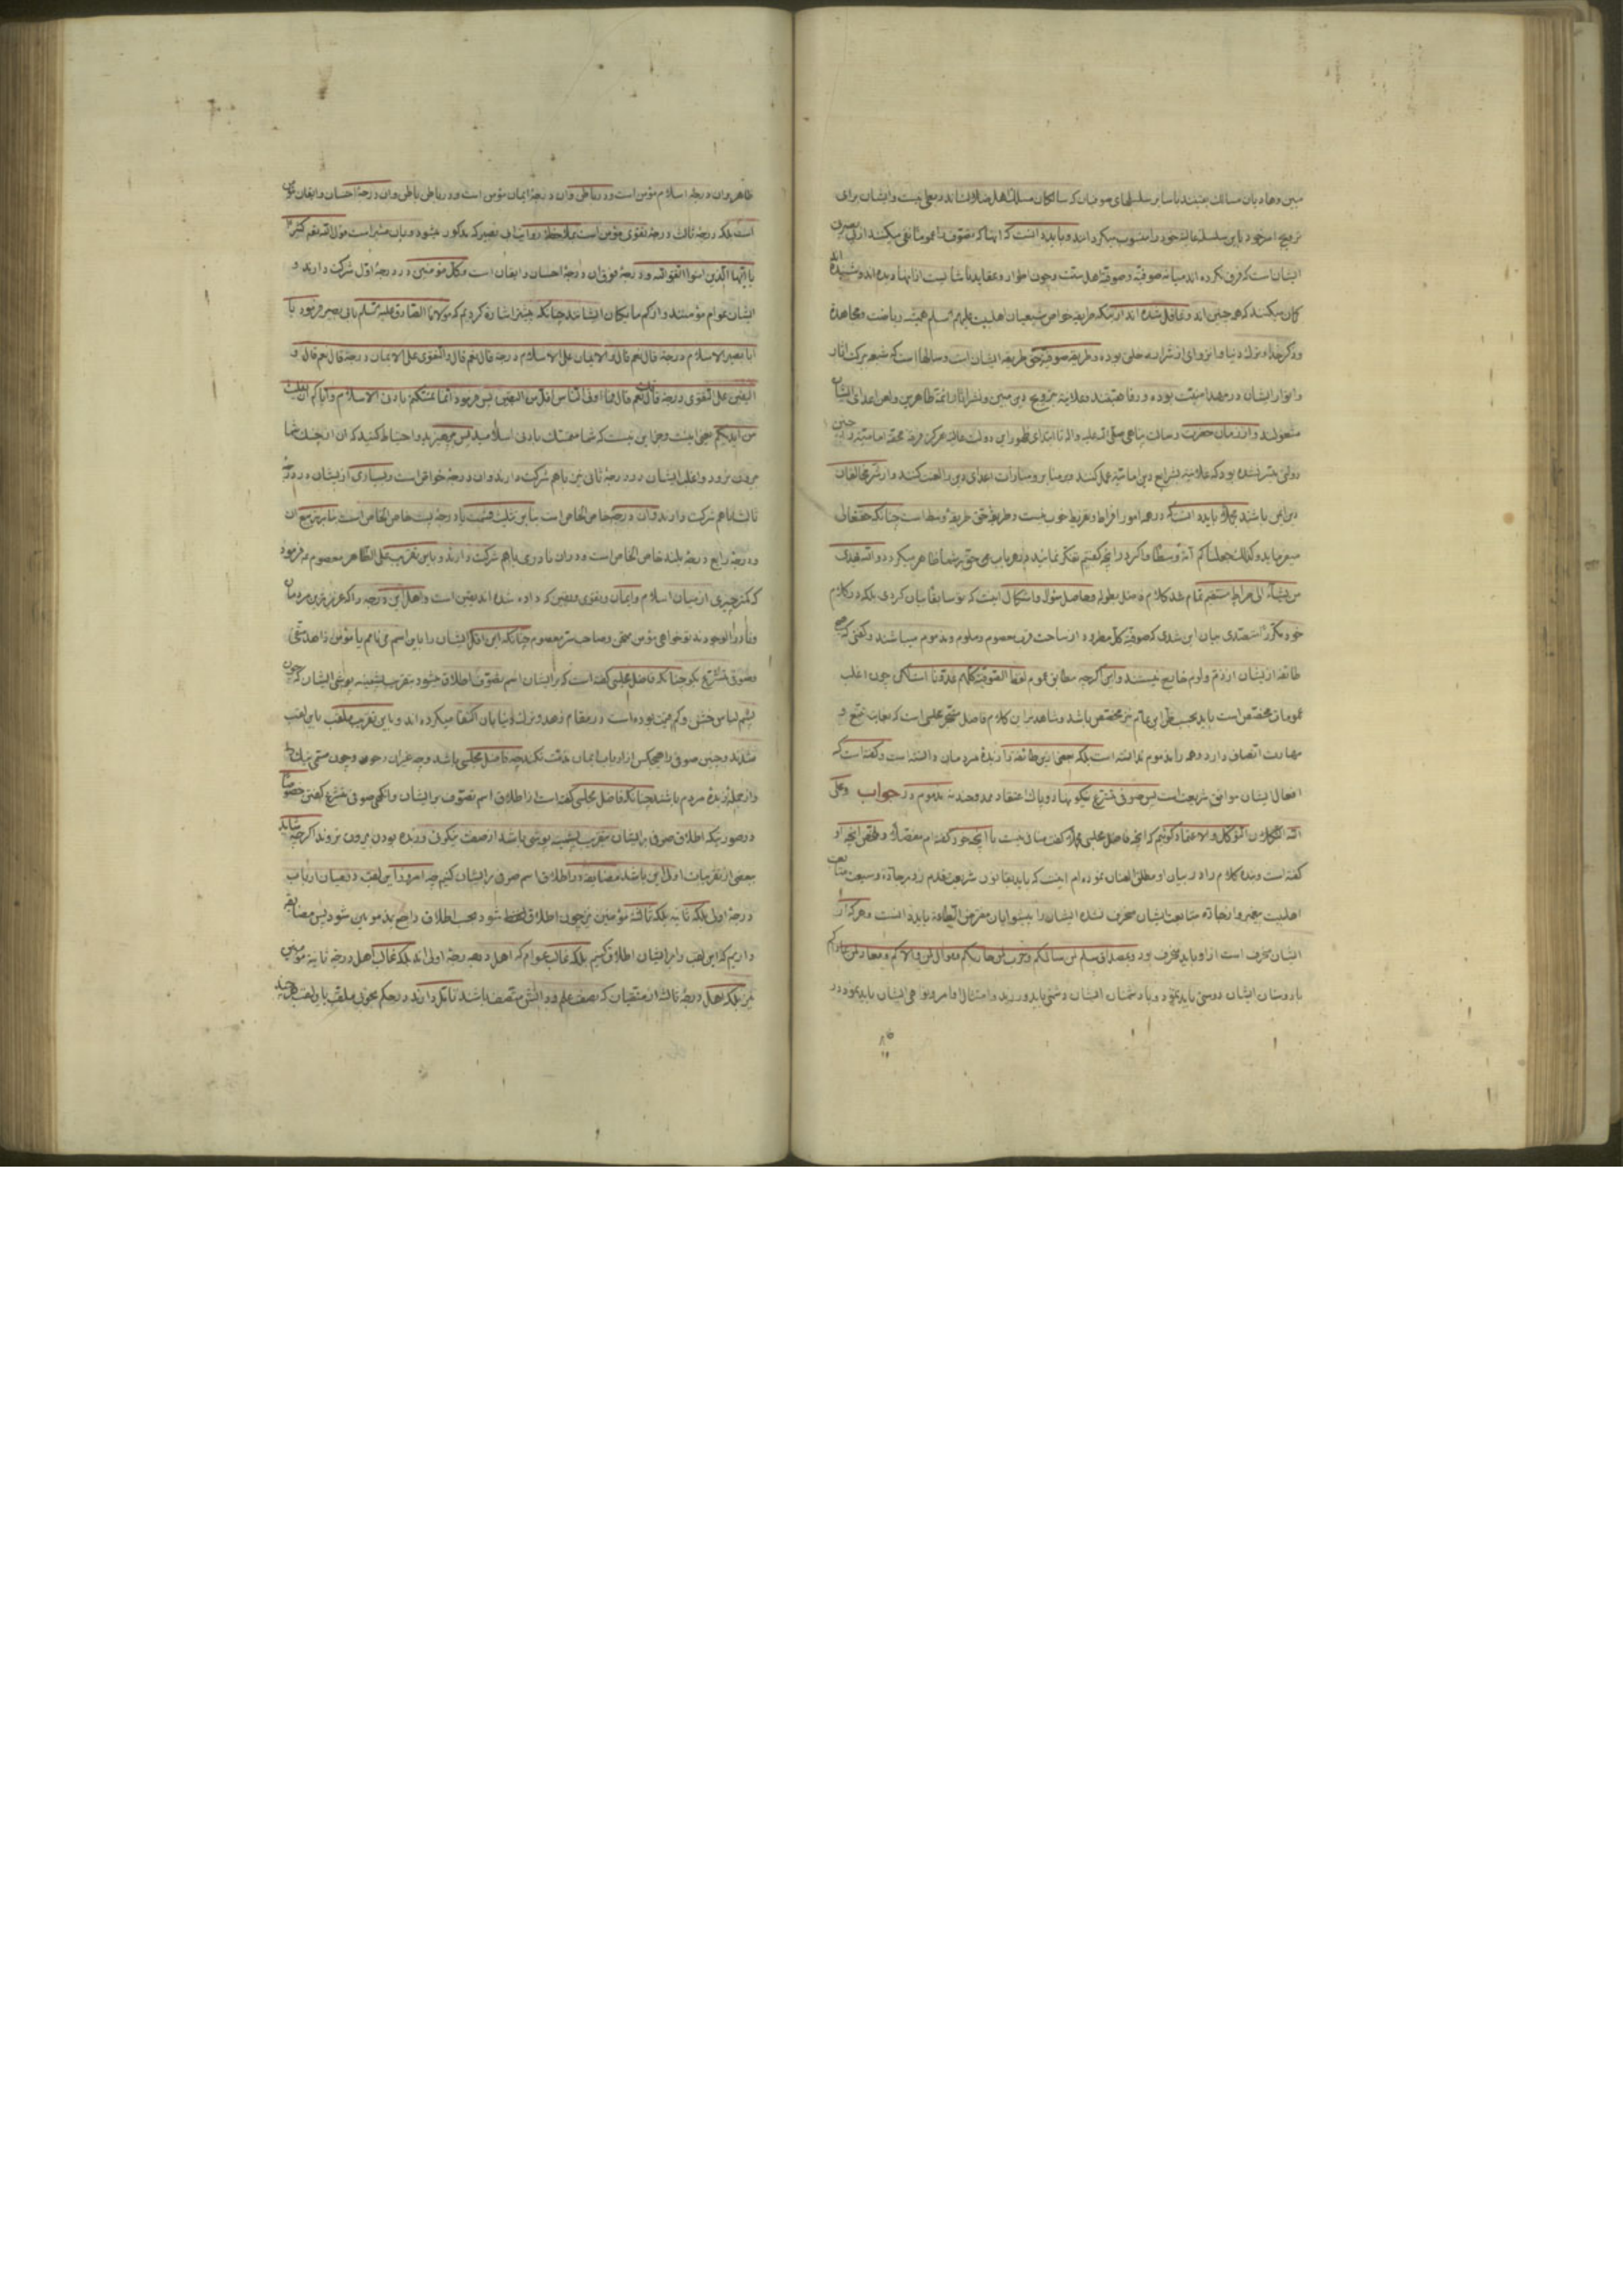 مبین وهادیان مسالک یقینند با سایر سلسلهای صوفیان که سالکان مسلک اهل ضلال‌اند دو معنی نیست و ایشان برای
ترویج امر خود باین سلسله عالیه خود را منسوب میکردانند و باید دانست که آنها که تصوف را عموما نفی میکنند از بی بصیرتی
ایشان است که فرق نکرده‌اند میانه صوفیه و صوفیه اهل سنت و چون اطوار و عقاید ناشایست از آنها دیده‌اند و شنیده اند
کان میکنند که همه چنین‌اند و غافل شده‌اند از اینکه طریقه خواص شیعیان اهلبیت علیهم السلم همیشه ریاضت و مجاهده
و ذکر خدا و ترک دنیا و انزوای از شرار خلق بوده و طریقه صوفیه حق طریقه ایشان است و سالها است که شیعه ببرکت آثار
و انوار ایشان در مهد امنیت بوده و رفاهیتند و علانیه بترویج دین مبین و نشر آثار ائمه طاهرین و لعن اعدای ایشان
مشغولند و از زمان حضرت رسالت پناهی صلی الله علیه واله تا ابتدای ظهور این دولت عالیه هرکز فرقه محقه امامیه را چنین
دولتی میسر نشده بود که علانیه بشرایع دین امامیه عمل کنند و بر منابر و منارات اعدای دین را لعنت کنند و از شر مخالفان
دین ایمن باشند مجملا باید دانست که در همه امور افراط و تفریط خوب نیست و طریقه حق طریقه وسط است چنانکه حقتعالی
میفرماید و کذلک جعلناکم امة وسطا و اکر در آنچه کفتیم تفکر نمائید در هر باب می حق بر شما ظاهر میکردد والله یهدی
من یشاء الی صراط مستقیم تمام شد کلام فاضل بطوله و حاصل سؤال و اشکال اینست که تو سابقا بیان کردی بلکه در کلام
خود مکرر متصدی بیان این شدی که صوفیه کل مطرود از ساحت قرب معصوم و ملوم و مذموم میباشند و کفتی که هیچ
طائفه از ایشان از ذم و لوم خارج نیستند و این اکرچه مطابق عموم لفظ الصوفیة کلهم عدونا است لکن چون اغلب
عمومات مخصص است باید بحسب ظن این عام نیز مخصص باشد و شاهد بر این کلام فاضل متبحر مجلسی است که بغایت تتبع و
مهارت اتصاف دارد و همه را مذموم ندانسته است بلکه بعضی ازین طائفه را زبدۀ مردمان دانسته است و کفته است که
افعال ایشان موافق شریعت است پس صوفی متشرع نیکونهاد و پاک اعتقاد ممدوح نه مذموم در جواب وعلی
الله التکلان التوکل والاعتماد کوئیم که آنچه فاضل مجلسی مجملا کفته منافی نیست با آنچه خود کفته‌ام مفصلا و ملخص آنچه او
کفته است و بنده کلام را در بیان او مطلق العنان نموده‌ام اینست که باید بقانون شریعت قدم زد بر جاده وسیعه متابعت
اهلبیت پیغمبر و از جاده متابعت ایشان منحرف نشد ایشان را پیشوایان مفترض الطاعه باید دانست و هرکه از
ایشان منحرف است از او باید منحرف بود و بمصداق سلم لمن سالمکم و حرب لمن حاربکم و موال لمن والاکم و معاد لمن عاداکم
با دوستان ایشان دوستی باید نمود و با دشمنان ایشان دشمنی باید ورزید و امتثال اوامر و نواهی ایشان باید نمود در
ظاهر وان درجه اسلام مؤمن است و در باطن وان درجه ایمان مؤمن است و در باطن باطن وان درجۀ احسان و ایقان مؤمن
است بلکه درجۀ ثالث درجۀ تقوی مؤمن است بملاحظه روایت ابی بصیر که مذکور میشود و بان مشیر است قول الله تعالی کثیرا
یا ایها الذین امنوا اتقوا الله و درجه فوق آن درجۀ احسان و ایقان است و کل مؤمنین در درجۀ اول شرکت دارند و
ایشان عوام مؤمنند و از کم مایکان ایشانند چنانکه پیشتر اشاره کردیم که مولانا الصادق علیه السلم بابی بصیر فرمود یا
ابا بصیر الاسلام درجة قال نعم قال والایمان علی الاسلام درجة قال نعم قال والتقوی علی الایمان درجة قال نعم قال و
الیقین علی التقوی درجة قال نعم قال فما اوتی الناس اقل من الیقین پس فرمود انما تمسکتم بادنی الاسلام وایاکم ان ینفلت
من ایدیکم یعنی اینست و جز این نیست که شما متمسک بادنی اسلامید پس بپرهیزید و احتیاط کنید که آن از چنک شما
بیرون نرود و اغلب ایشان در درجۀ ثانی نیز باهم شرکت دارند وان درجۀ خواص است و بسیاری از ایشان در درجه
ثالث باهم شرکت دارند وان درجۀ خاص الخاص است بنا برین تثلیث قسمت یا درجۀ بیست خاص الخاص است بنا بر تربیع ان
و درجۀ رابع درجۀ بلند خاص الخاص است و در ان نادری باهم شرکت دارند و باین تقریب علی الظاهر معصوم فرمود
که کمتر چیزی از میان اسلام و ایمان و تقوی و یقین که داده شده‌اند یقین است و اهل این درجه را که عزیزترین مردمان
و نادرالوجودند تو خواهی مؤمن ممتحن و صاحب سر معصوم چنانکه این اقل ایشان را باین اسم می‌نامم یا مؤمن زاهد متقی
و صوفی متشرع بکو چنانکه فاضل مجلسی کفته است که بر ایشان اسم تصوف اطلاق میشود بتقریب پشمینه پوشی ایشان که چون
پشم لباس خشن و کم قیمت بوده است در مقام زهد و ترک دنیا بان اکتفا میکرده‌اند و باین تقریب ملقب باین لقب
شدند و چنین صوفی را هیچکس از ارباب ایمان مذمت نکند چه فاضل مجلسی باشد و چه غیر ان
و از جمله زبدۀ مردم باشند چنانکه فاضل مجلسی کفته است از اطلاق اسم تصوف بر ایشان و انکهی صوفی متشرع کفتن خصوصا
در صورتیکه اطلاق صوفی بر ایشان بتقریب پشمینه پوشی باشد از صفت نیکوئی و زبده بودن بیرون نروند اکرچه شاید
بعضی از تقریبات اولی این باشد مضایقه در اطلاق اسم صوفی بر ایشان کنیم چه امروز این لقب در میان ارباب
درجۀ اولی بلکه ثانیه بلکه ثالثه مؤمنین نیز چون اطلاق لفظ شود بحسب اطلاق راجع بمذمومین شود پس مضایقه
داریم که این لقب را بر ایشان اطلاق کنیم بلکه غالب عوام که اهل درجه اولی‌اند بلکه غالب اهل درجۀ ثانیه مؤمنین
نیز بلکه اهل درجۀ ثالث از متقیان که بصفت علم و دانش متصف باشند تأمل دارند در حکم بخوبی ملقب باین لقب هرچند